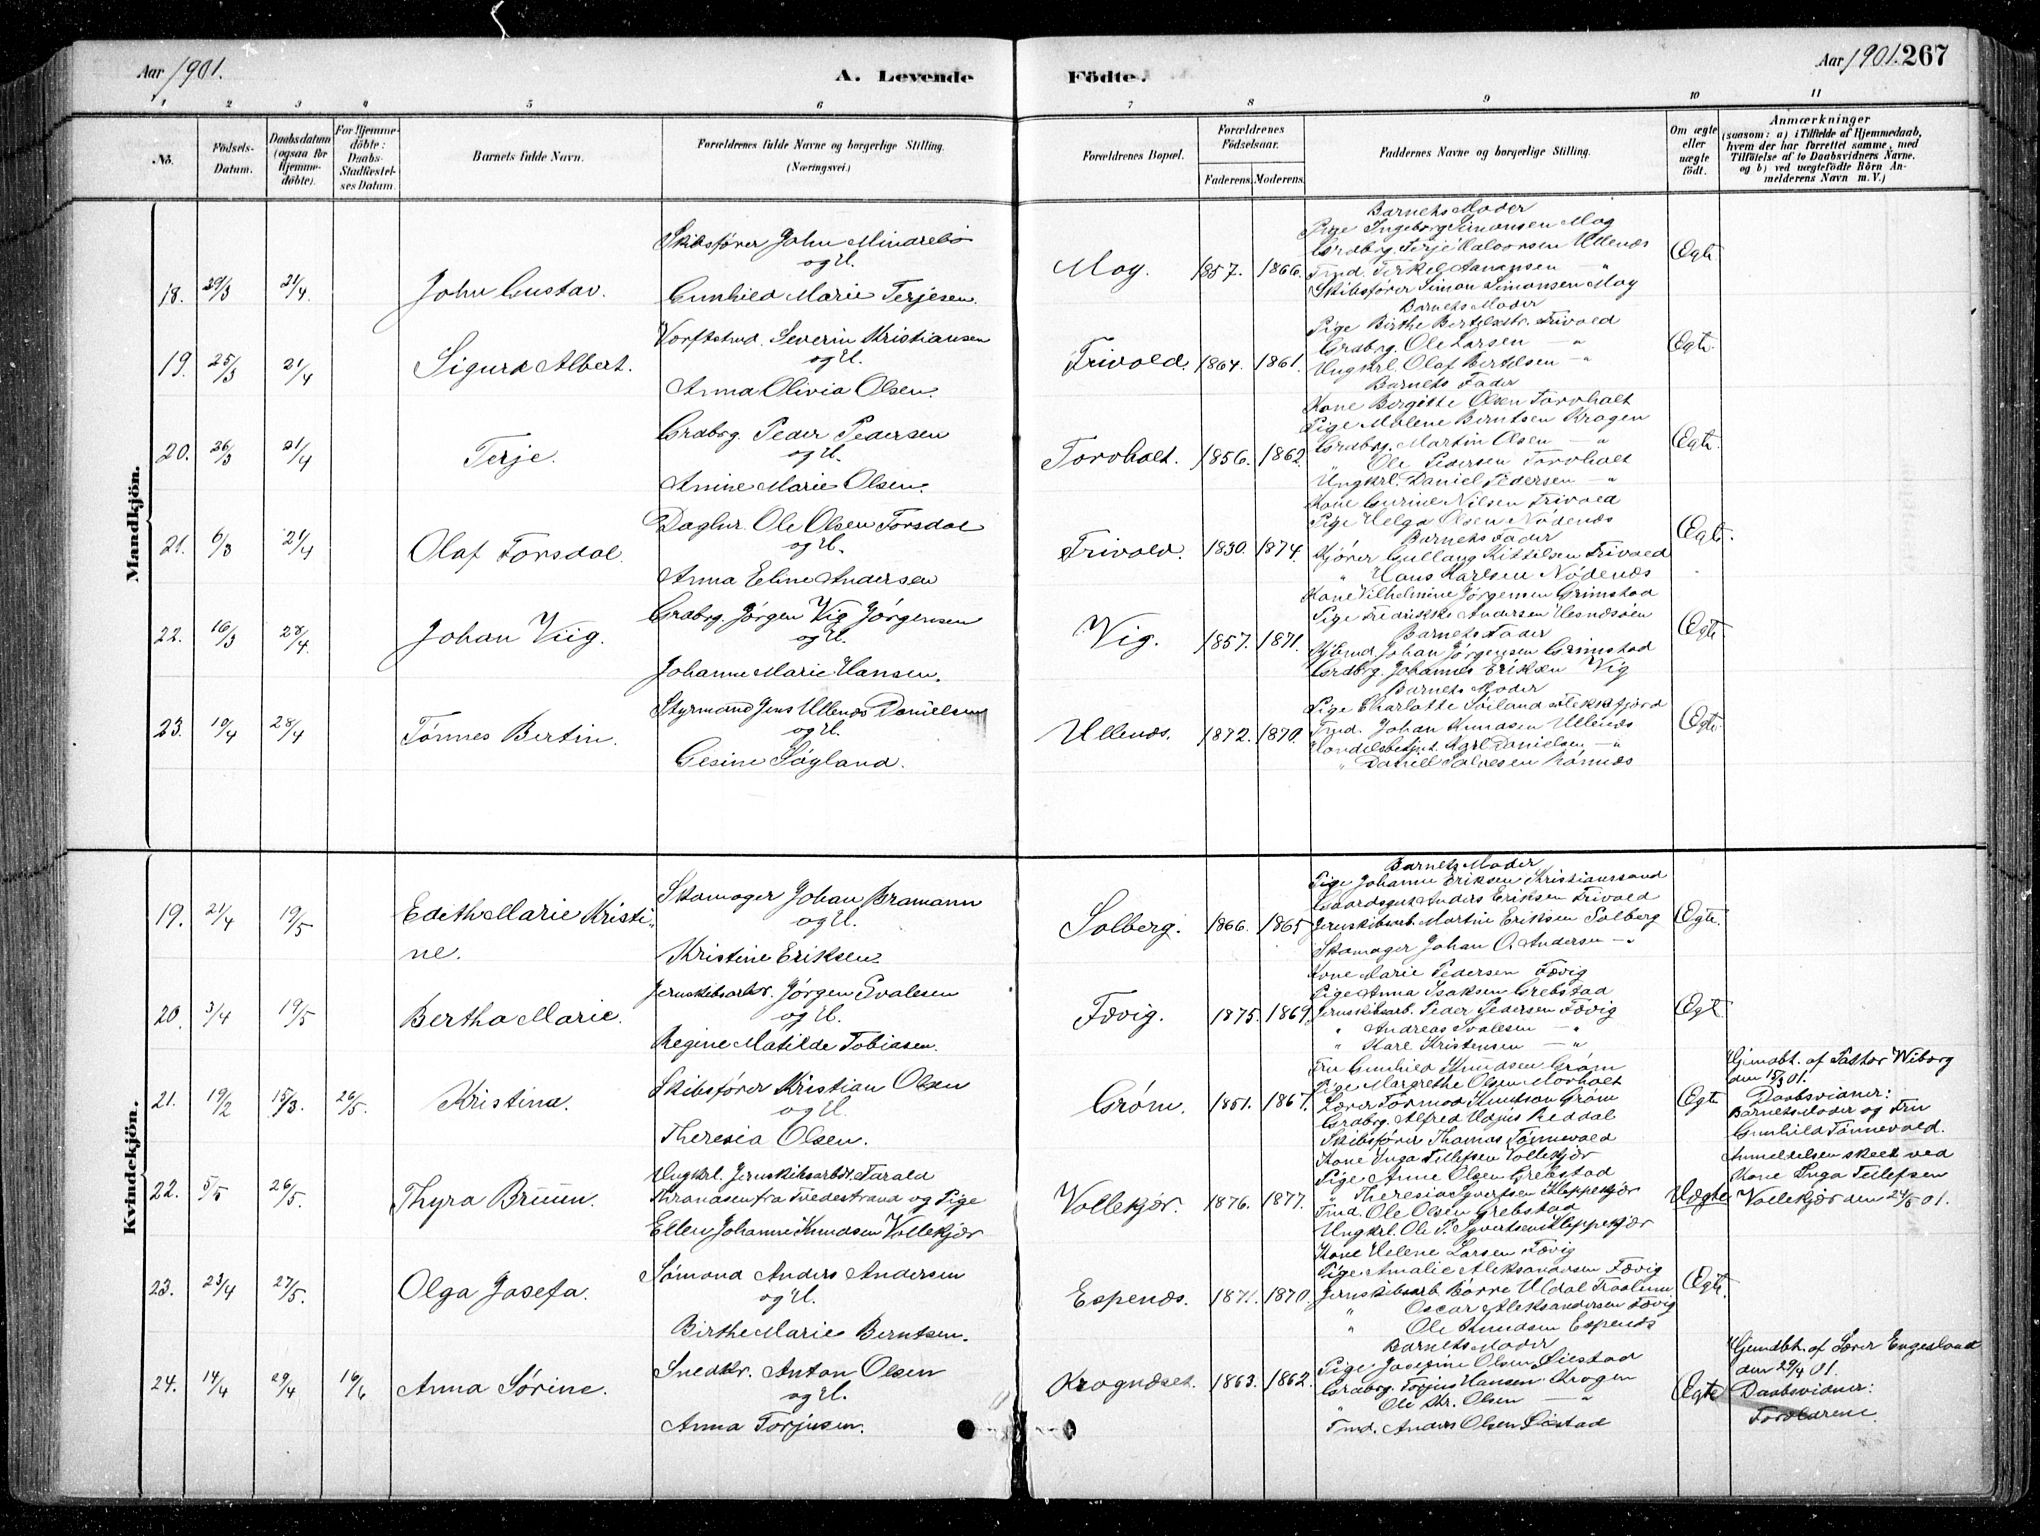 Aar 1901.
A. Levende
Födte.
Aar 1901. 267
1 2 3 4 5 6 7 8 9 10 11
No.
Födsels-
Datum.
Daabsdatum
(ogsaa for
Hjemme-
döbte).
For Hjemme-
döbte:
Daabs-
Stadfæstel-
ses Datum.
Barnets fulde Navn.
Forældrenes fulde Navne og borgerlige Stilling.
(Næringsvei.)
Forældrenes Bopæl.
Forældrenes
Födselsaar.
Faderens. Moderens.
Faddernes Navne og borgerlige Stilling.
Om ægte
eller
uægte
födt.
Anmærkninger
(saasom: a) i Tilfælde af Hjemmedaab,
hvem der har forrettet samme, med
Tilföielse af to Daabsvidners Navne.
og b) ved uægtefödte Börn An-
melderens Navn m. V.)
Mandkjön.
18. 29/3 21/4. John Gustav.
Skibsfører John Mindrebø
og H.
Gunhild Marie Terjesen.
Moy. 1857. 1866.
Barnets Moder
Pige Ingeborg Simonsen Moy
Grdbrg. Terje Halvorsen Ullenæs
Tmd. Terkel Aanensen — "
Skibsfører Simon Simonsen Moy
Egte
19. 25/3 21/4 Sigurd Albert.
Værftstmd. Severin Kristiansen
og H.
Anna Olivia Olsen.
Frivold. 1864. 1861.
Barnets Moder
Pige Birthe Bertelsen. Frivold
Grdbrg. Ole Larsen — "
Ungkrl. Olaf Bertelsen — "
Barnets Fader
Egte.
20. 26/3 21/4 Terje.
Grdbrg. Peder Pedersen
og H.
Anine Marie Olsen.
Torvholt. 1856. 1862.
Kone Bergitte Olsen Torvholt
Pige Malene Berntsen Kragen
Grdbrg. Martin Olsen — "
" Ole Pedersen Torvholt
Ungkrl. Daniel Pedersen — "
Egte.
21. 6/3 21/4 Olaf Torsdal.
Daglnr. Ole Olsen Torsdal
og H.
Anna Eline Andersen
Frivold. 1830. 1874.
Kone Gurine Nilsen Frivold
Pige Helga Olsen Nødenæs
Barnets Fader
Kjører Gullaug Kittelsen Frivold
" Hans Karlsen Nødenæs
Egte.
22. 16/3 28/4. Johan Viig.
Grdbrg. Jørgen Vig Jørgensen
og H.
Johanne Marie Hansen.
Vig. 1857. 1871.
Kone Vilhelmine Jørgensen Grimstad
Pige Fredrikke Andersen Hesnæsøen
Barnets Fader
Kjøbmd Johan Jørgensen Grimstad
Grdbrg. Johannes Eriksen Vig
Egte.
23. 10/4 28/4 Tønnes Bertin.
Styrmand Jens Ullenæs Danielsen
og H.
Gesine Søyland.
Ullenæs. 1872. 1870.
Barnets Moder
Pige Charlotte Søiland Flekkefjord
Tmd. Johan Knudsen Ullenæs
Handelsbetjnt. Karl Danielsen — "
" Daniel Salvesen
Egte.
Kvindekjön.
19. 21/4 19/5 Edith Marie Kristi-
ne.
Skomager Johan Bramann
og H.
Kristine Eriksen.
Solberg. 1866. 1865.
Barnets Moder
Pige Johanne Eriksen Kristianssand
Gaardsgut Anders Eriksen Frivold
Jernskibsarb. Martin Eriksen Solberg
Skomager Johan O. Andersen — "
Egte.
20 3/4 19/5 Bertha Marie.
Jernskibsarb. Jørgen Evalesen
og H.
Regine Matilde Tobiasen.
Fævig. 1875. 1869.
Kone Marie Pedersen Fævig
Pige Anna Isaksen Grebstad
Jernskibsarb. Peder Pedersen Fævig
" Andreas Evalesen — "
" Karl Kristensen — "
Egte
21. 19/2 15/3. 26/5. Kristina.
Skibsfører Kristian Olsen
og H.
Theresia Olsen.
Grøm. 1851. 1867.
Fru Gunhild Knudsen Grøm
Pige Margrethe Olsen Morholt
Lærer Tormod Knutson Grøm
Grdbrg. Alfred Reddal
Skibsfører Thomas Tønnevold
Egte
Hjmdbt. af Pastor Wiborg
den 15/3 01.
Daabsvidner:
Barnets Moder og Fru
Gunhild Tønnevold.
22. 5/5 26/5. Thyra Bruun.
Ungkrl. Jernskibsarbdr. Farald
Strandsen fra Tvedestrand og Pige
Ellen Johanne Knudsen Vollekjær
Vollekjær. 1876. 1877.
Kone Inga Tellefsen Vollekjær
Pige Anne Olsen Grebstad
" Theresia Syvertsen Kleppekjær
Tmd. Ole Olsen Grebstad
Ungkrl. Ole P. Syvertsen Kleppekjær
Uægte
Anmeldelsen skeet ved
Kone Inga Tellefsen
Vollekjær den 24/5 01.
23. 23/4 27/5. Olga Josefa.
Sømand Anders Andersen
og H.
Birthe Marie Berntsen.
Espenæs. 1871. 1870
Kone Helene Larsen Fævig
Pige Amalie Aleksandersen Fævig
Jernskibsarb. Børre Uldal
" Oscar Aleksandersen Fævig
" Ole Knudsen Espenæs
Egte.
24. 14/4 29/4 16/6 Anna Sørine.
Snedkr. Anton Olsen
og H.
Anna Torjusen.
Kragnæset. 1863. 1862.
Barnets Moder
Pige Josefine Olsen Øiestad
Grdbrg. Torjus Hansen Kragen
" Ole Chr. Olsen — "
Tmd. Anders Olsen Øiestad
Egte
Hjemdbt. af Lærer Engesland
den 29/4 01.
Daabsvidner:
Forældrene.